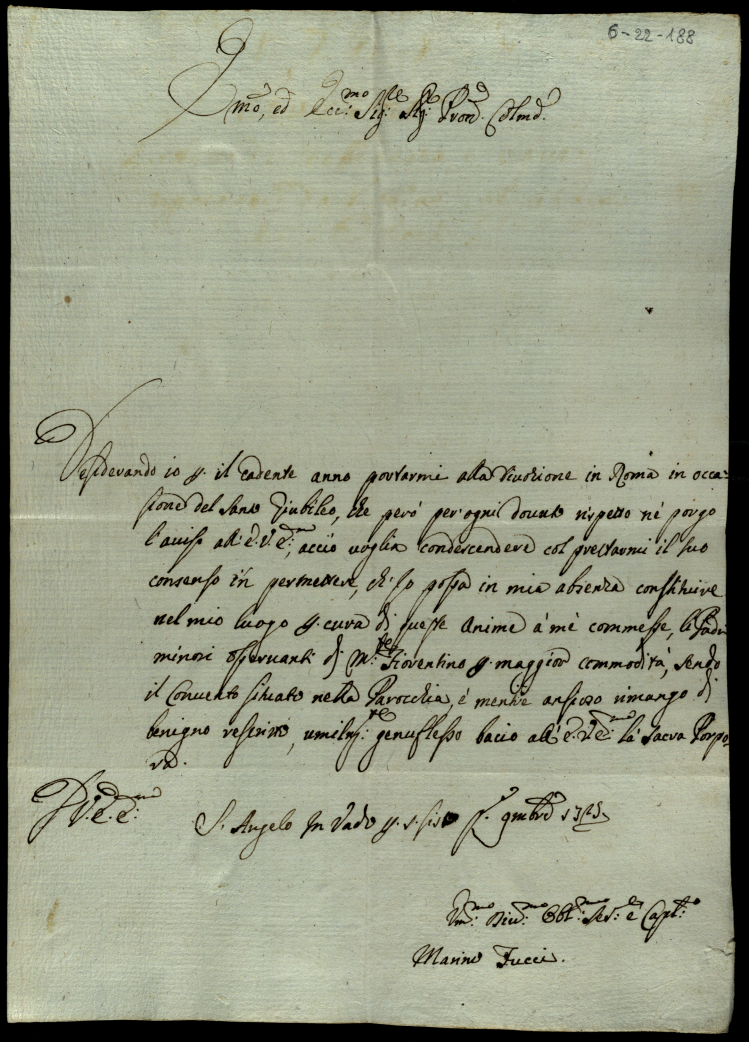 6-22-188
Em.o, ed Ecc.mo Sig.re Sig.re Pron. Colmo.
Desiderando io p. il cadente anno portarmi alla divozione in Roma in occa-
sione del Santo Giubileo, che però per ogni dovuto rispetto nè porgo
l'aviso all'E.V.E.ma, acciò voglia condescendere col prestarmi il suo
consenso in permettere, ch'Io possa in mia absenza constituire
nel mio luogo p. cura di queste Anime à mè commesse, li Padri
minori osservanti di M.te Fiorentino p. maggior commodità, sendo
il Convento situato nella Parocchia, e mentre ansioso rimango di
benigno rescritto, umilm.te genuflesso bacio all'E.V.E.ma la Sacra Porpo-
ra.
D.V.E.E.ma
S. Angelo In Vado p. 9mbre 1725
Um.mo Div.mo Obl.mo Ser.e e Capl.o
Marino Fucci.